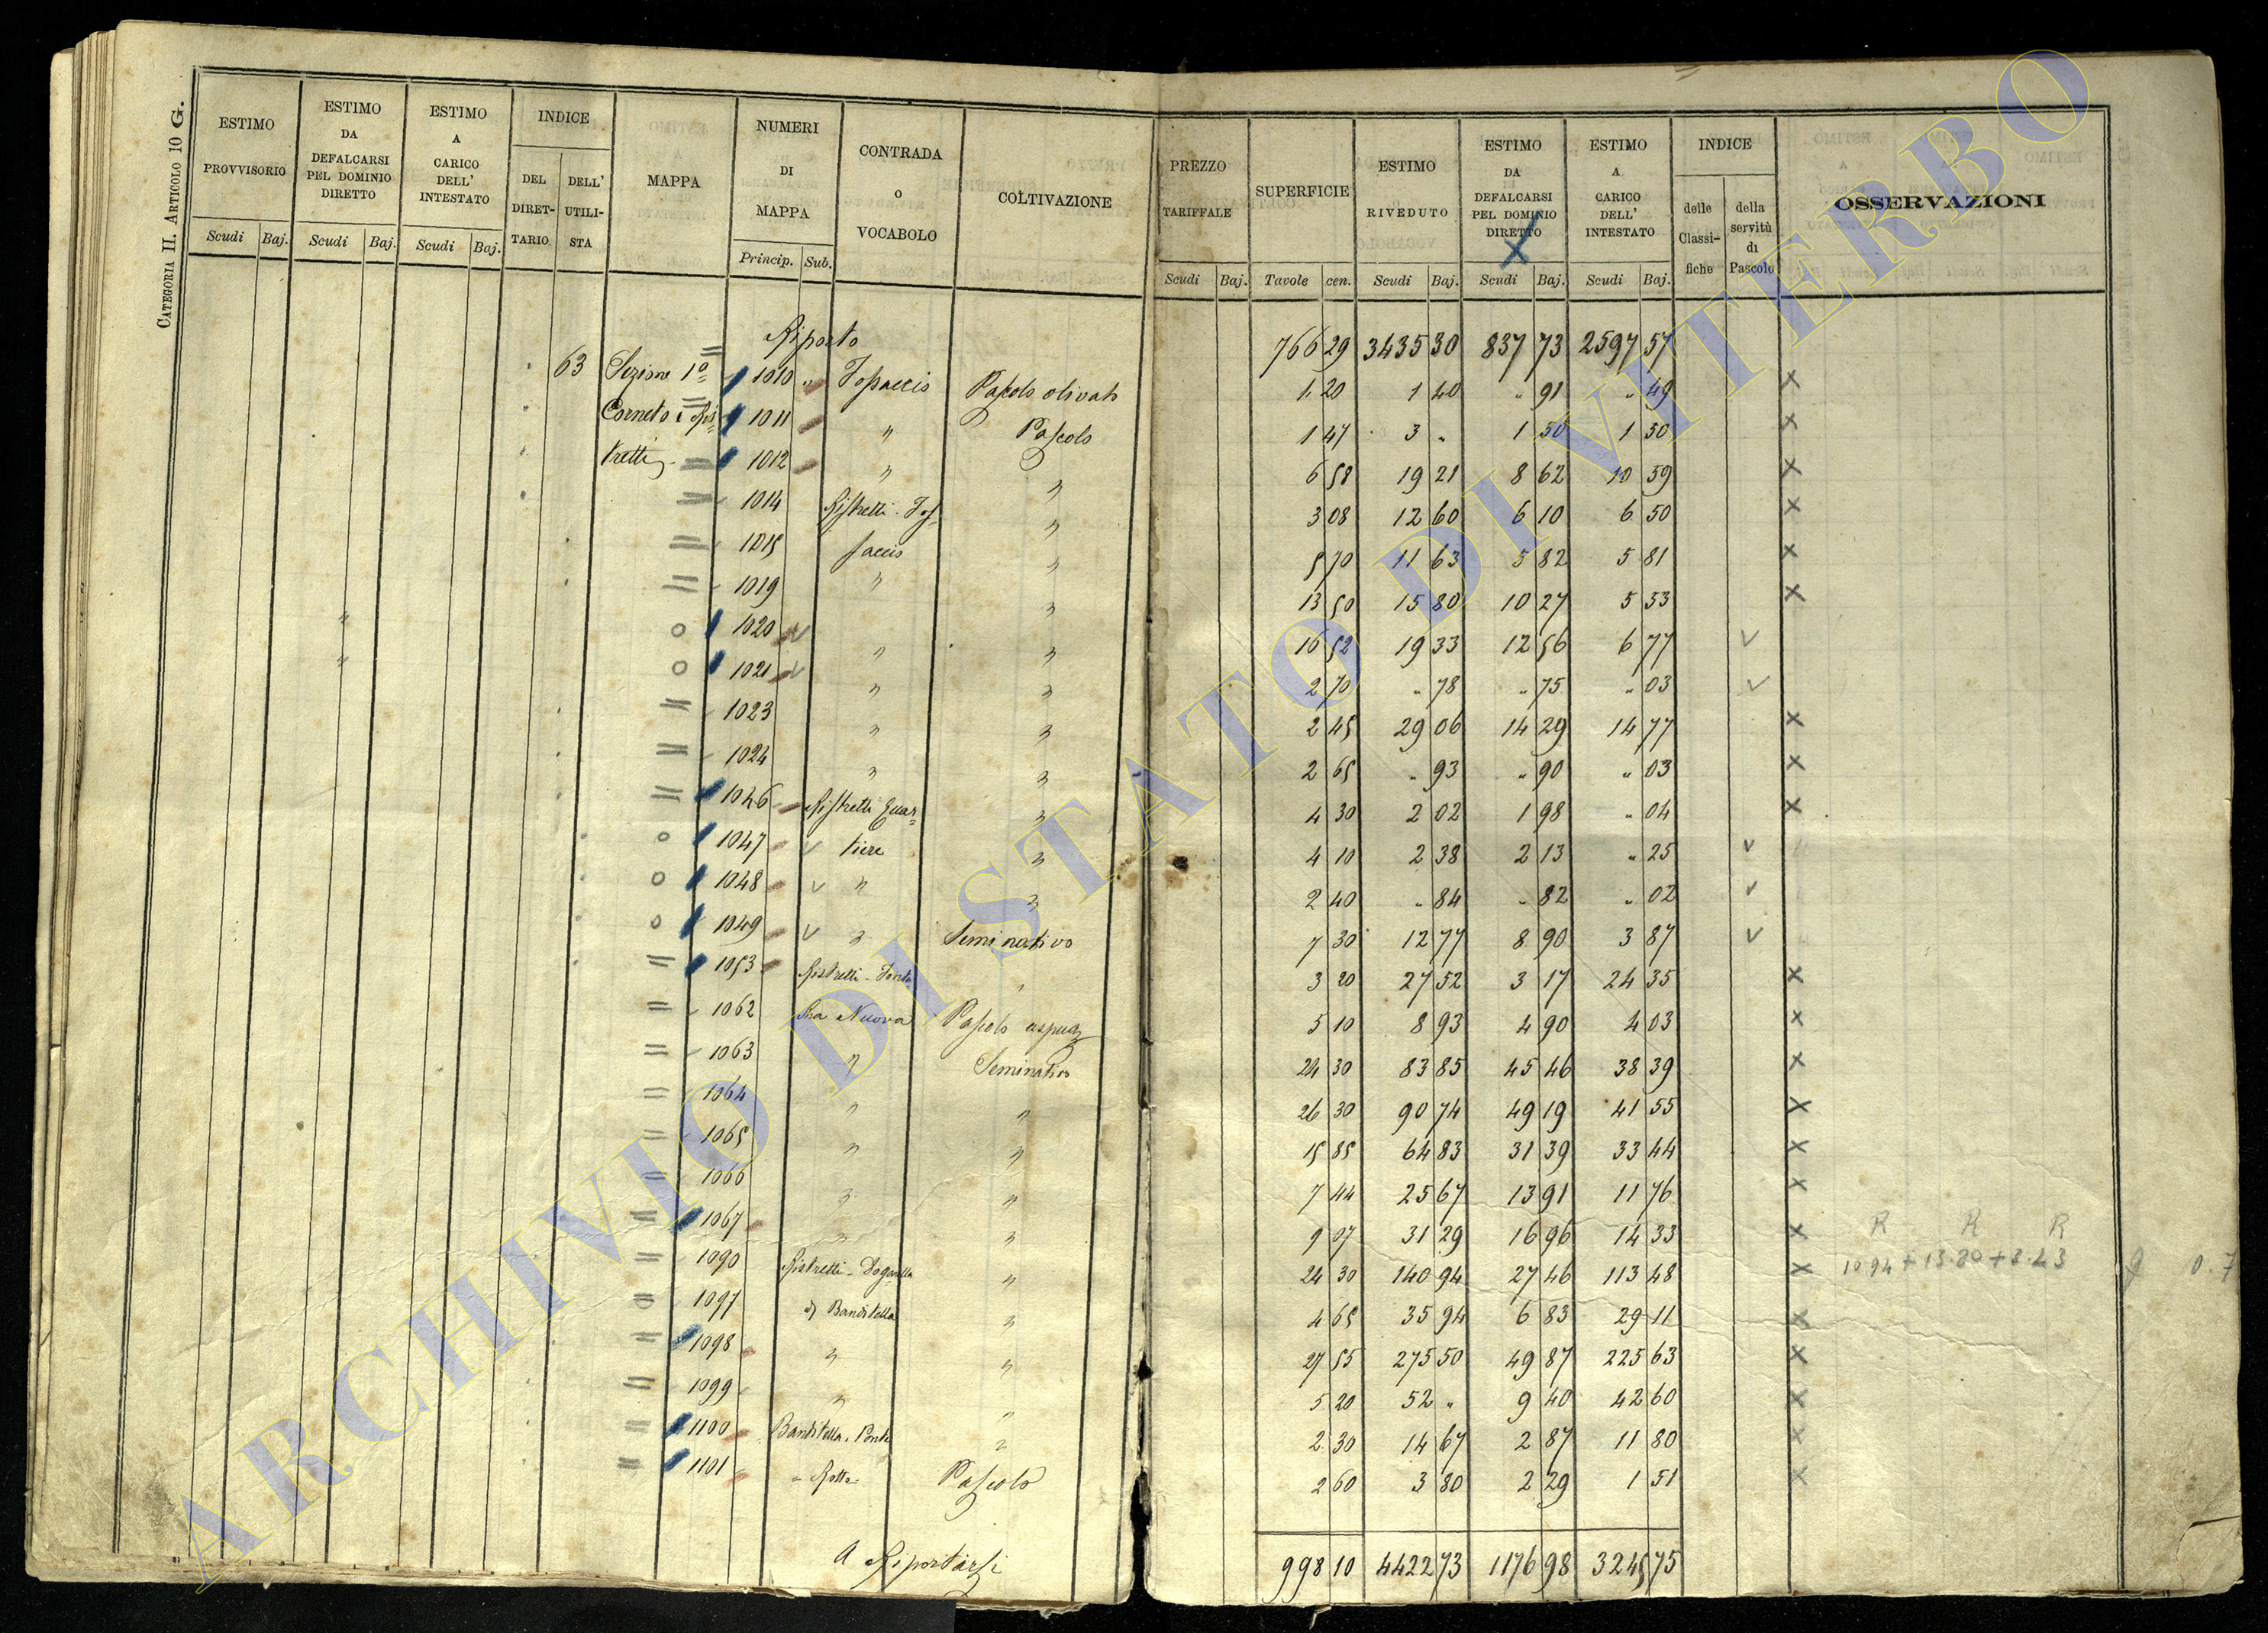 CATEGORIA II. ARTICOLO 10 G.
ESTIMO PROVVISORIO Scudi Baj.
ESTIMO DA DEFALCARSI PEL DOMINIO DIRETTO Scudi Baj.
ESTIMO A CARICO DELL' INTESTATO Scudi Baj.
INDICE DEL DIRETTARIO DELL' UTILISTA
MAPPA
NUMERI DI MAPPA Princip. Sub.
CONTRADA o VOCABOLO
COLTIVAZIONE
PREZZO TARIFFALE Scudi Baj.
SUPERFICIE Tavole cen.
ESTIMO RIVEDUTO Scudi Baj.
ESTIMO DA DEFALCARSI PEL DOMINIO DIRETTO Scudi Baj.
ESTIMO A CARICO DELL' INTESTATO Scudi Baj.
INDICE delle Classifiche della servitù di Pascolo
OSSERVAZIONI
Riporto 766 29 3435 30 837 73 2597 57
63 Sezione 1ª 1010 " Pascolo olivato 1 20 1 40 " 91 " 49 x
Corneto e 1011 " Pascolo 1 47 3 " 1 50 1 50 x
1012 " " 6 58 19 21 8 62 10 59 x
1014 Ristretti " 3 08 12 60 6 10 6 50 x
1015 " 5 70 11 63 5 82 5 81 x
1019 " " 13 50 15 80 10 27 5 53 x
" o 1020 v " " 16 52 19 33 12 56 6 77 v
" o 1021 v " " 2 70 " 78 " 75 " 03 v
1023 " " 2 45 29 06 14 29 14 77 x
1024 " " 2 65 " 93 " 90 " 03 x
1046 Ristretti Quar= " 4 30 2 02 1 98 " 04 x
o 1047 v tiere " 4 10 2 38 2 13 " 25 v
o 1048 v " " 2 40 " 84 " 82 " 02 v
o 1049 v " Seminativo 7 30 12 77 8 90 3 87 v
1053 Ristretti - Fonta " 3 20 27 52 3 17 24 35 x
1062 na Nuova Pascolo 5 10 8 93 4 90 4 03 x
1063 " Seminativo 24 30 83 85 45 46 38 39 x
1064 " " 26 30 90 74 49 19 41 55 x
1065 " " 15 85 64 83 31 39 33 44 x
1066 " " 7 44 25 67 13 91 11 76 x
1067 " " 9 07 31 29 16 96 14 33 x R R R
1090 Ristretti - Doganella " 24 30 140 94 27 46 113 48 x 10 94 + 13.80 +
1097 Banditella " 4 65 35 94 6 83 29 11 x
1098 " " 27 55 275 50 49 87 225 63 x
1099 " " 5 20 52 " 9 40 42 60 x
1100 Banditella. Ponte " 2 30 14 67 2 87 11 80 x
1101 Rotto Pascolo 2 60 3 80 2 29 1 51 x
A Riportarsi 998 10 4422 73 1176 98 3245 75
ARCHIVIO DI STATO DI VITERBO